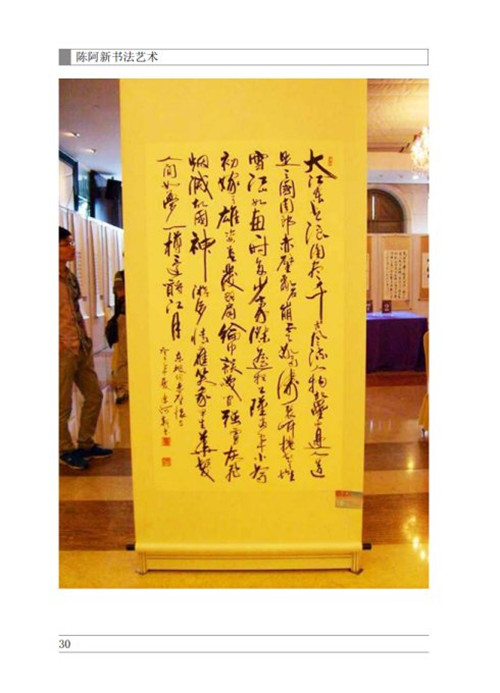 陈阿新书法艺术
大江东去浪淘尽千古风流人物故垒西边人道
是三國周郎赤壁乱石崩云惊涛裂岸卷起千堆
雪江山如画一时多少豪傑遥想公瑾当年小乔
初嫁了雄姿英发羽扇纶巾谈笑间强虏灰飞
烟灭故國神游多情應笑我早生华发
人间如梦一樽还酹江月
东坡词赤壁怀古
30